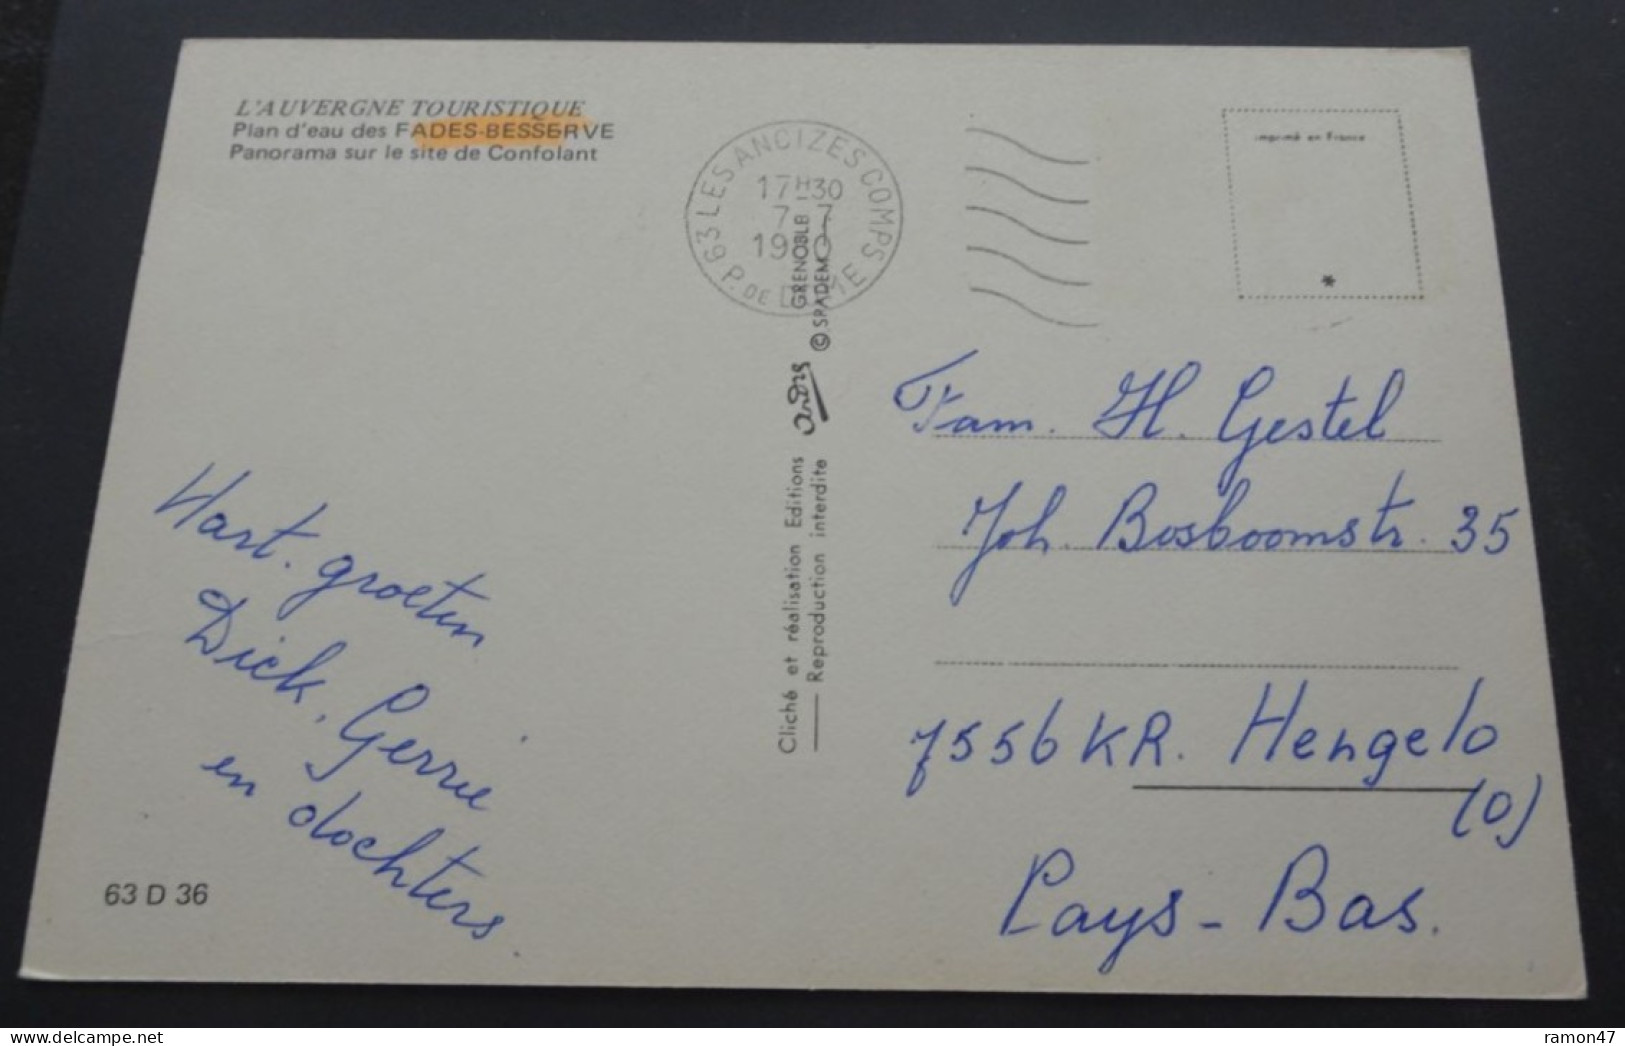 L'AUVERGNE TOURISTIQUE
Plan d'eau des FADES-BESSERVE
Panorama sur le site de Confolant
63 LES ANCIZES COMPS
P. DE DOME
17H30
7-7
imprimé en France
*
GRENOBLE
© SPADEM
Cliché et réalisation Editions André
Reproduction interdite
Hart. groeten
Dick, Gerrie
en dochters.
63 D 36
Fam. H. Gestel
Joh. Bosboomstr. 35
7556 KR. Hengelo
(O)
Pays-Bas.
ramon47